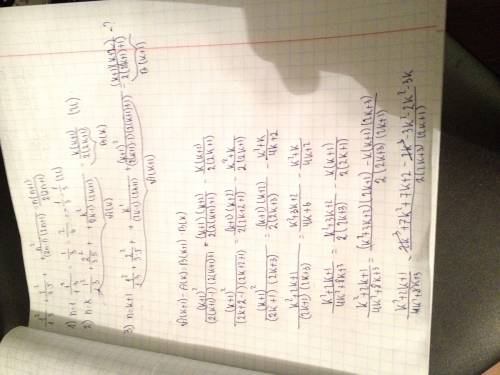 1²/1·3 + 2²/3·5 + ... + n²/(2n-1)(2n+1) = n(n+1)/2(2n+1)
1) n=1 1²/1·3 = 1/3 = 1/3 (U)
2) n=k 1²/1·3 + 2²/3·5 + ... + k²/(2k-1)(2k+1) = k(k+1)/2(2k+1) (U)
A(k) B(k)
3) n=k+1 1²/1·3 + 2²/3·5 + ... + k²/(2k-1)(2k+1) + (k+1)²/(2(k+1)-1)(2(k+1)+1) = (k+1)(k+2)/2(2(k+1)+1) - ?
A(k+1) B(k+1)
A(k+1) - A(k) = B(k+1) - B(k)
(k+1)²/(2(k+1)-1)(2(k+1)+1) = (k+1)(k+2)/2(2(k+1)+1) - k(k+1)/2(2k+1)
(k+1)²/(2k+2-1)(2k+2+1) = (k+1)(k+2)/2(2k+2+1) - k²+k/2(2k+1)
(k+1)²/(2k+1)(2k+3) = (k+1)(k+2)/2(2k+3) - k²+k/4k+2
k²+2k+1/(2k+1)(2k+3) = k²+3k+2/4k+6 - k²+k/4k+2
k²+2k+1/4k²+8k+3 = k²+3k+2/2(2k+3) - k(k+1)/2(2k+1)
k²+2k+1/4k²+8k+3 = (k²+3k+2)(2k+1) - k(k+1)(2k+3)/2(2k+3)(2k+1)
k²+2k+1/4k²+8k+3 = -2k³-3k²-2k²-3k/2(2k+3)(2k+1)